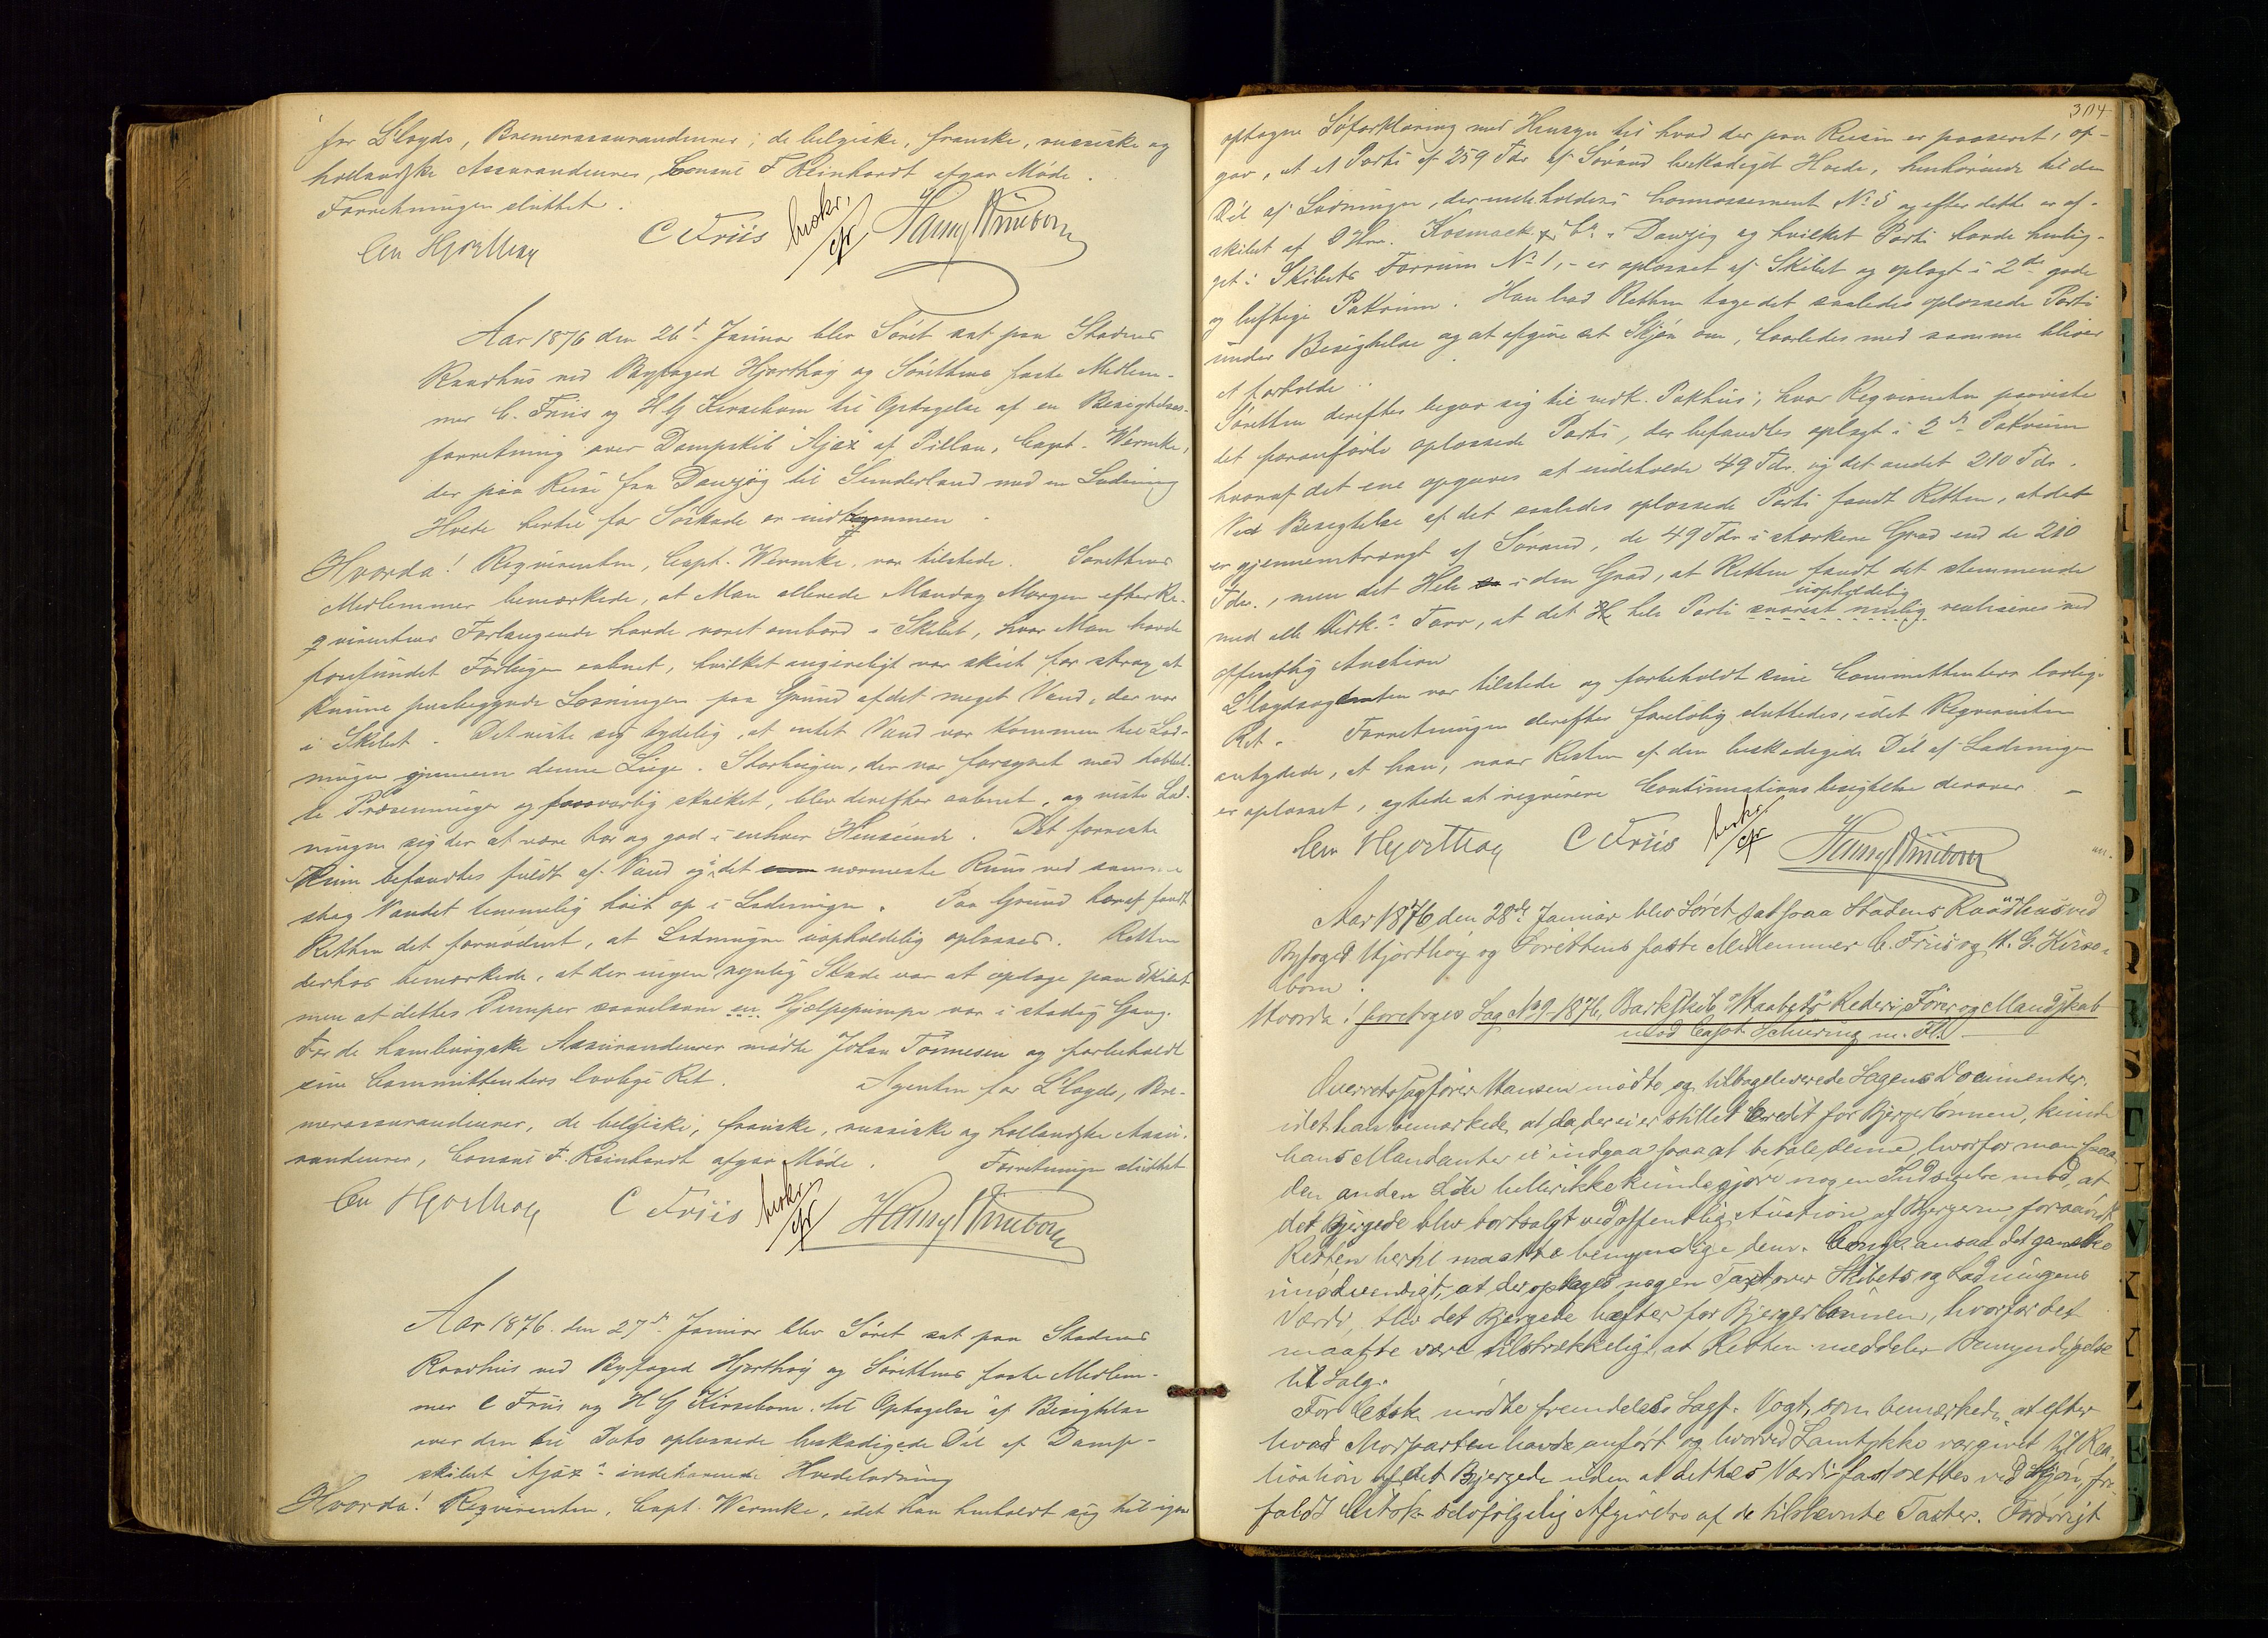 for Lloyds, Bremerassurandeurer, de belgiske, franske, russiske og
hollandske Assurandeurer, Consul F Reinhardt afgav Møde.
Forretningen sluttet.
Chr Hjorthøy C Friis
Aar 1876 den 26d Januar blev Søret sat paa Stadens
Raadhus ved Byfoged Hjorthøy og Sørettens faste Medlem-
mer C. Friis og H G Kirsebom til Optagelse af en Besigtelses-
forretning over Dampskib "Ajax" af Pillau, Capt. Wernke,
der paa Reise fra Danzig til Sunderland med en Ladning
Hvede hertil for Søskade er indkommen.
Hvorda! Reqvirenten, Capt. Wernke, var tilstede. Sørettens
Medlemmer bemærkede, at Man allerede Mandag Morgen efter Re-
qvirentens Forlangende havde været ombord i Skibet, hvor Man havde
forefundet Forlugen aabnet, hvilket angiveligt var skeet for strax at
kunne paabegynde Losningen paa Grund af det meget Vand, der var
i Skibet. Det viste sig tydelig, at intet Vand var kommen til Lad-
ningen gjennem denne Luge. Storlugen, der var forsynet med dobbel-
te Presenninger og forsvarlig skalket, blev derefter aabnet, og viste Lad-
ningen sig der at være tør og god i enhver Henseende. Det forreste
Rum befandtes fuldt af Vand og i det nærmeste Rum ved samme
stog Vandet temmelig høit op i Ladningen. Paa Grund heraf fandt
Retten det fornødent, at Ladningen uopholdelig oplosses. Retten
derhos bemærkede, at der ingen synlig Skade var at opdage paa Skibet
men at dettes Pumper saavelsom en Hjælpepumpe var i stadig Gang.
For de hamburgske Assurandeurer mødte Johan Tønnesen og forbeholdt
sine Committenters lovlige Ret. Agenten for Lloyds, Bre-
merassurandeurer, de belgiske, franske, russiske og hollandske Assu-
randeurer, Consul F. Reinhardt afgav Møde. Forretningen sluttet
Chr Hjorthøy C Friis
Aar 1876 den 27de Januar blev Søret sat paa Stadens
Raadhus ved Byfoged Hjorthøy og Sørettens faste Medlem-
mer C Friis og H G Kirsebom til Optagelse af Besigtelse
over den til Dato oplossede beskadigede Del af Damp-
skibet "Ajax" indehavende Hvedeladning
Hvorda! Reqvirenten, Capt. Wernke, idet han henholdt sig til igaar
304
optagne Søforklaring med Hensyn til hvad der paa Reisen er passeret, op-
gav, at et Parti af 259 Tdr af Søvand beskadiget Hvede, henhørende til den
Del af Ladningen, der indeholdes i Connossement No 5 og efter dette er af-
skibet af Hrr. Kosmack & Co i Danzig og hvilket Parti havde henlig-
get i Skibets Forrum No 1, – er oplosset af Skibet og oplagt i 2de gode
og luftige Pakrum. Han bad Retten tage det saaledes oplossede Parti
under Besigtelse og at afgive sit Skjøn om, hvorledes med samme bliver
at forholde.
Søretten derefter begav sig til vedk. Pakhus, hvor Reqvirenten paaviste
det foranførte oplossede Parti, der befandtes oplagt i 2de Pakrum
hvoraf det ene opgaves at indeholde 49 Tdr. og det andet 210 Tdr.
Ved Besigtelse af det saaledes oplossede Parti fandt Retten, at det
er gjennemtrængt af Søvand, de 49 Tdr i stærkere Grad end de 210
Tdr., men det Hele i den Grad, at Retten fandt det stemmende
med alle Vedk.s Tarv, at det hele Parti snarest mulig uopholdelig realiseres ved
offentlig Auction
Lloydsagenten var tilstede og forbeholdt sine Committenters lovlige
Ret. Forretningen derefter foreløbig sluttedes, idet Reqvirenten
antydede, at han, naar Resten af den beskadigede Del af Ladningen
er oplosset, agtede at reqvirere Continuationsbesigtelse derover –
Chr Hjorthøy C Friis
Aar 1876 den 28de Januar blev Søret sat paa Stadens Raadhus ved
Byfoged Hjorthøy og Sørettens faste Medlemmer C. Friis og H. G. Kirse-
bom.
Hvorda! foretoges Sag No 1-1876, Barkskib "Haabets" Rederi, Fører og Mandskab
mod Capt. Schuring m. Fl.
Overretssagfører Hansen mødte og tilbageleverede Sagens Documenter,
idet han bemærkede, at da der ei er stillet Credit for Bjergerlønnen, kunde
hans Mandanter ei indgaa paa at betale denne, hvorfor man paa
den anden Side heller ikke kunde gjøre nogen Indsigelse mod, at
det Bjergede blev bortsolgt ved offentlig Auction af Bjergerne, forsaavidt
Retten hertil maatte bemyndige dem. Comp. ansaa det ganske
unødvendigt, at der optages nogen Taxt over Skibets og Ladningens
Værdi, thi det Bjergede hæfter for Bjergerlønnen, hvorfor det
maatte være tilstrækkeligt, at Retten meddeler Bemyndigelse
til Salg.
For Citsk. mødte fremdeles Sagf. Vogt, som bemærkede, at efter
hvad Modparten havde anført og hvorved Samtykke var givet til Rea-
lisation af det Bjergede uden at dettes Værdi fastsættes ved Skjøn, fra-
faldt Citsk. selvfølgelig Afgivelse af de tilstævnte Taxter. Forøvrigt